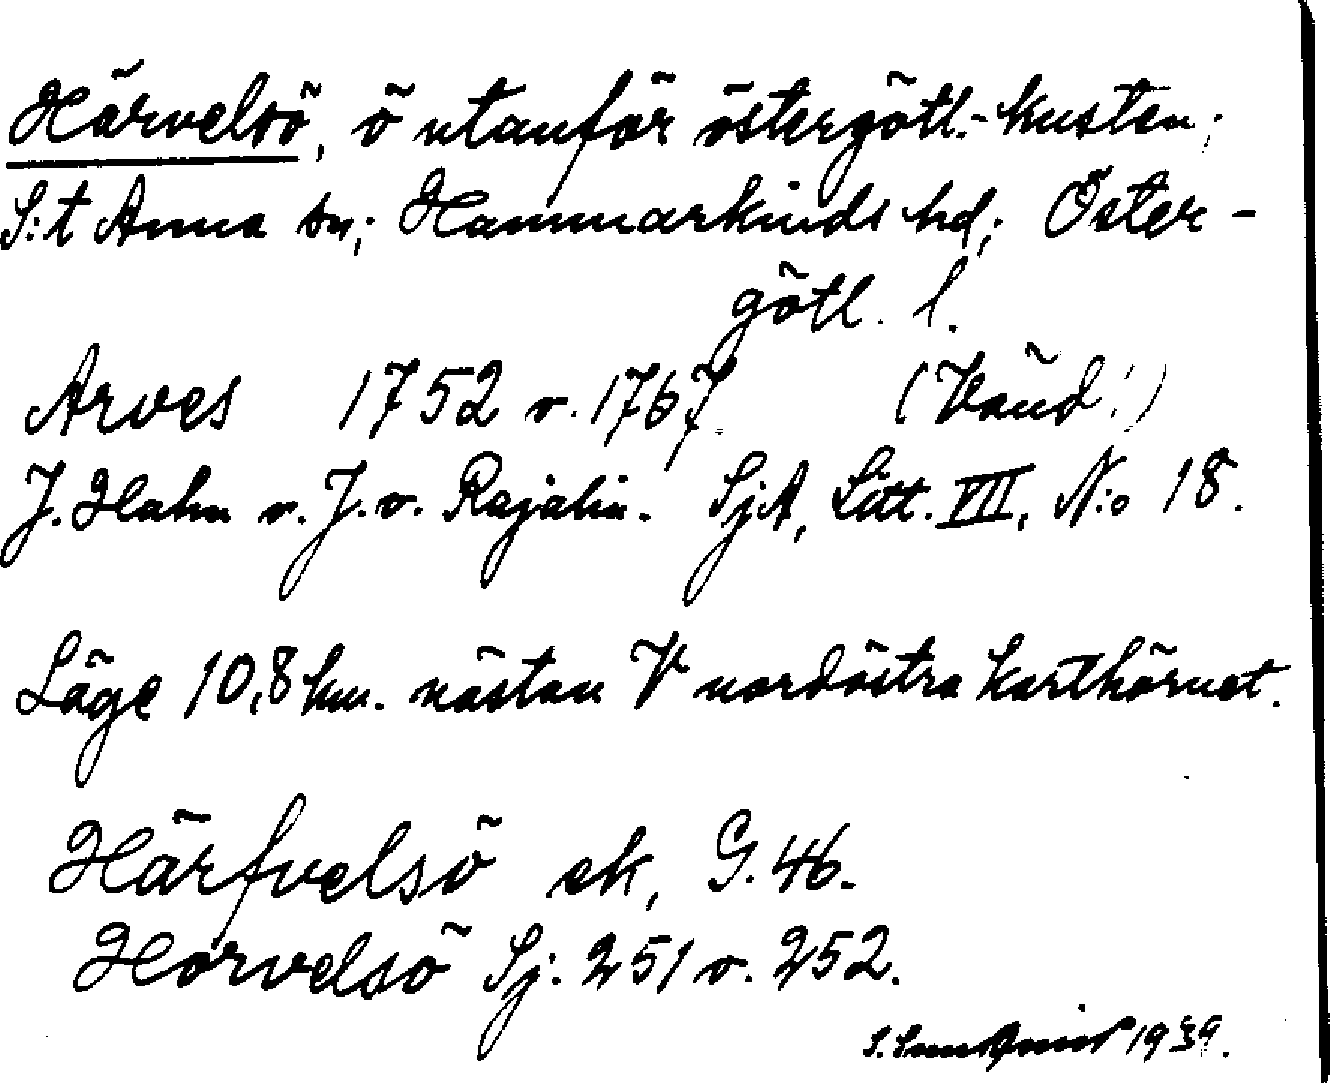 Härvelsö, ö utanför östergötl.-kusten;
S:t Anna sn; Hammarkinds hd; Öster-
götl. l.
Arves 1752 o. 1767. (Vänd!)
J. Hahn o. J. v. Rajalin. SjA, Litt. VII, N:o 18.
Läge 10,8 km. nästan V nordöstra karthörnet.
Härfvelsö ek, G. 46.
Horvelsö Sj. 251 o. 252.
S. 1939.